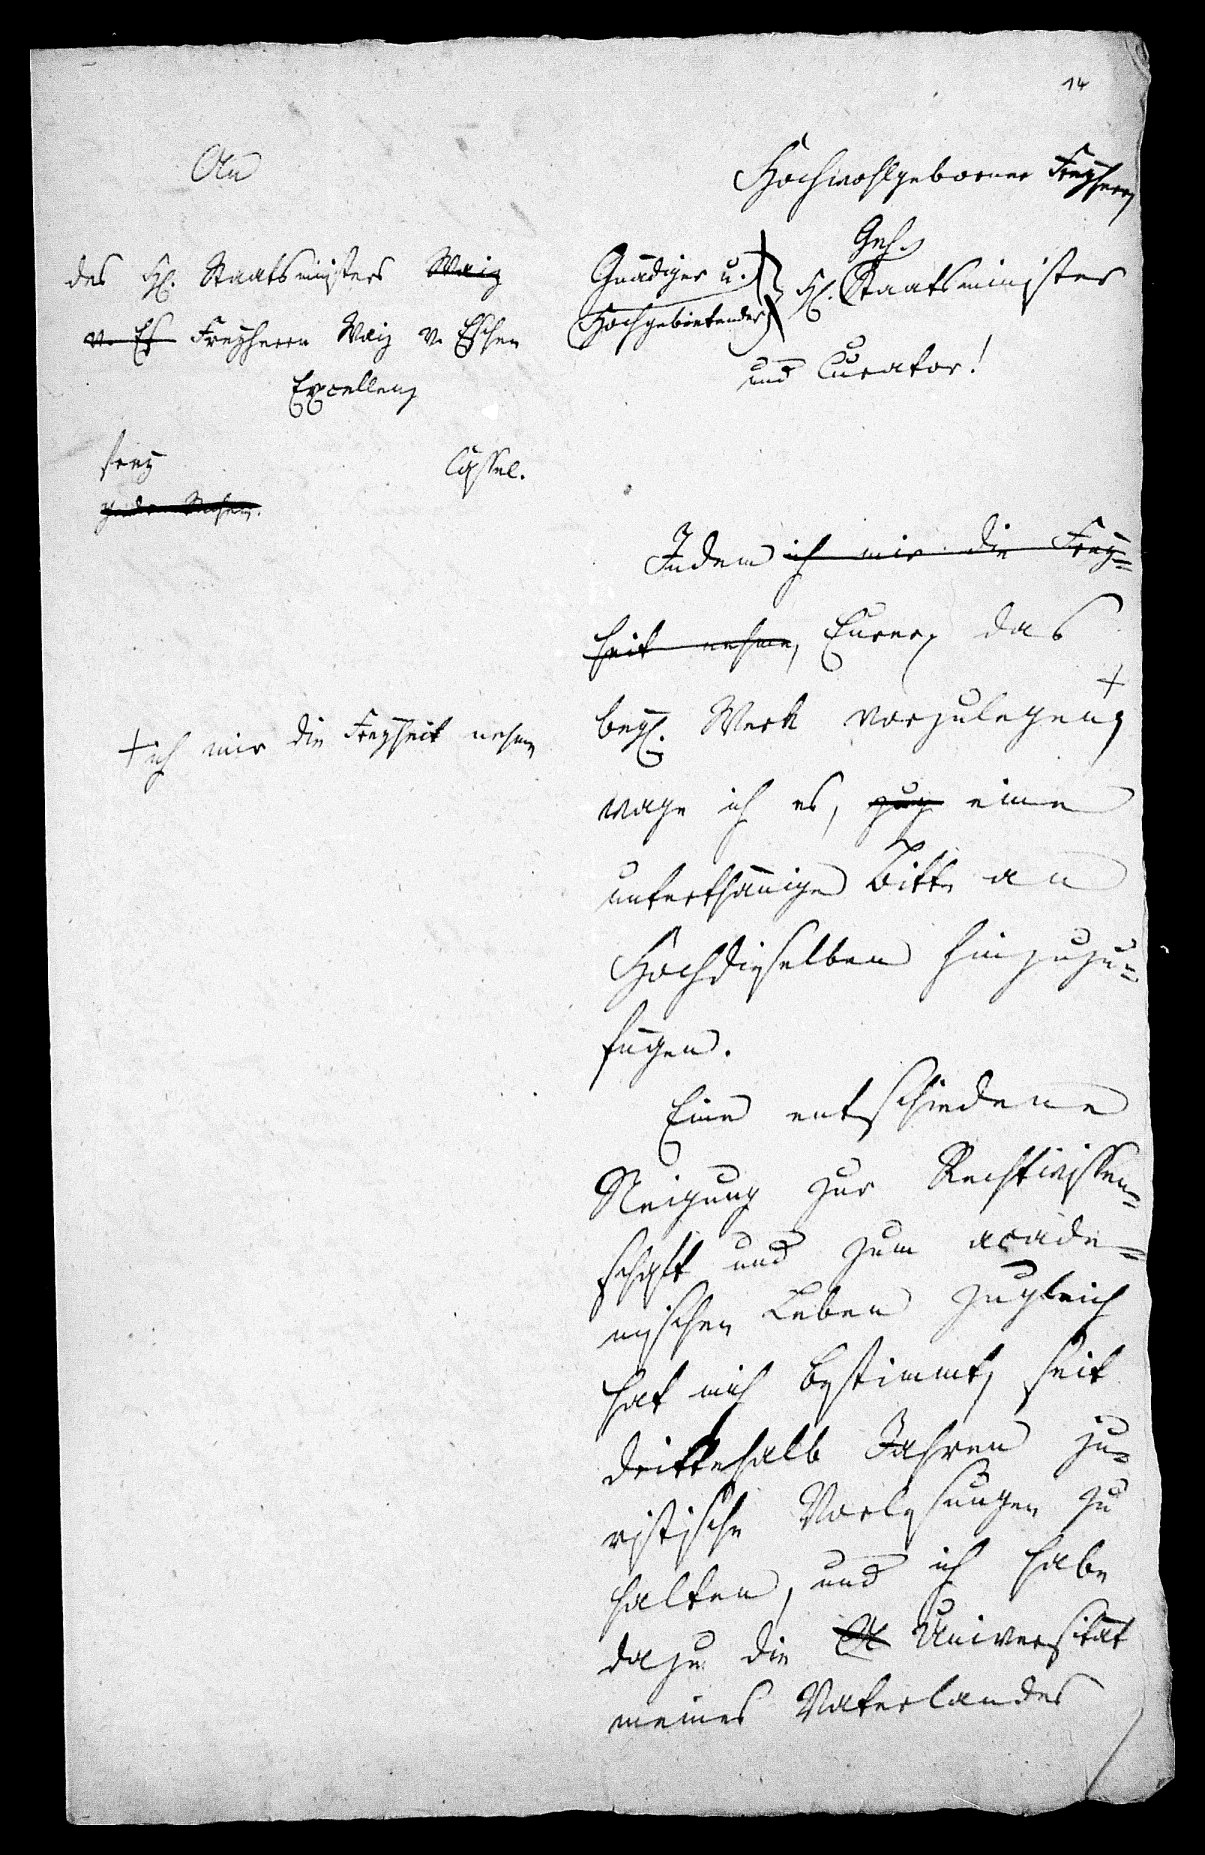 14
An
des H. Staatsministers Waiz
v. Es Freyherrn Waiz v. Eschen
Excellenz
frey
Cassel.
Hochwohlgeborner Freyherr,
Geh.
Gnädiger u.
Hochgebietender
H. Staatsminister
und Curator!
Indem ich mir die Frey-
heit nehme, Eurer das
beyl. Werk vorzulegen,
+ ich mir die Freyheit nehme
wage ich es, eine
unterthänige Bitte an
Hochdieselben hinzuzu-
fügen.
Eine entschiedene
Neigung zur Rechtswissen-
schaft und zum acade-
mischen Leben zugleich
hat mich bestimmt, seit
drittehalb Jahren ju-
ristische Vorlesungen zu
halten, und ich habe
dazu die Universität
meines Vaterlandes